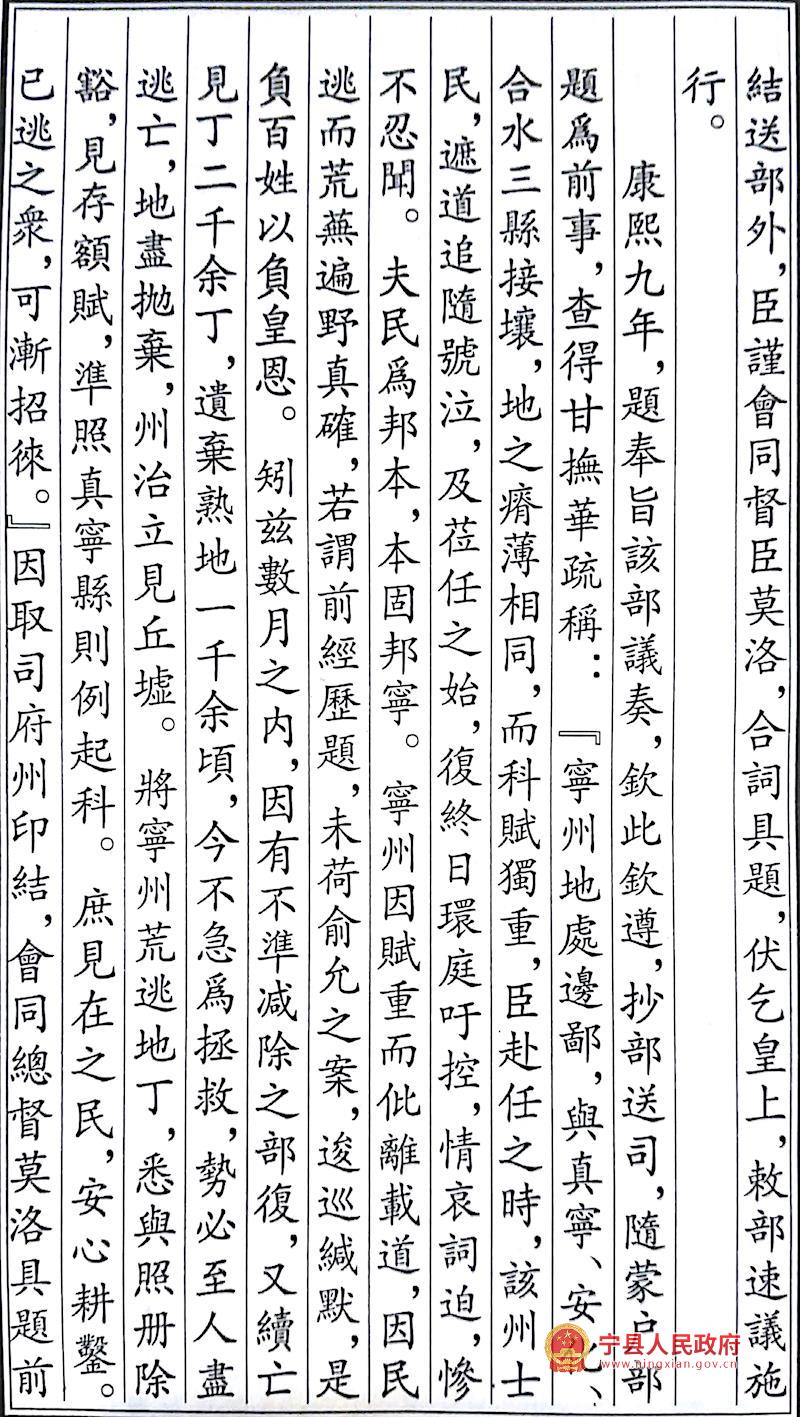 結送部外，臣謹會同督臣莫洛，合詞具題，伏乞皇上，敕部速議施
行。
康熙九年，題奉旨該部議奏，欽此欽遵，抄部送司，隨蒙户部
題爲前事，查得甘撫華疏稱：『寧州地處邊鄙，與真寧、安化、
合水三縣接壤，地之瘠薄相同，而科賦獨重，臣赴任之時，該州士
民，遮道追隨號泣，及莅任之始，復終日環庭吁控，情哀詞迫，慘
不忍聞。夫民爲邦本，本固邦寧。寧州因賦重而仳離載道，因民
逃而荒蕪遍野真確，若謂前經歷題，未荷俞允之案，逡巡緘默，是
負百姓以負皇恩。矧兹數月之内，因有不準减除之部復，又續亡
見丁二千余丁，遺棄熟地一千余頃，今不急爲拯救，勢必至人盡
逃亡，地盡抛棄，州治立見丘墟。將寧州荒逃地丁，悉與照册除
豁，見存額賦，準照真寧縣則例起科。庶見在之民，安心耕鑿。
已逃之衆，可漸招徠。』因取司府州印結，會同總督莫洛具題前
宁县人民政府
www.ningxian.gov.cn